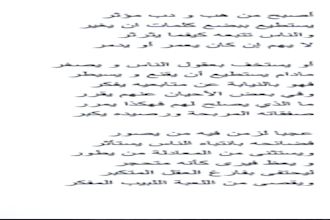 أصبح من هب و دب مؤثر
يستطيع ببضع كلمات ان يغير
والناس تتبعه كيفما يثرثر
لا يهم إن كان يعمر أو يدمر
أو يستخف بعقول الناس و يصغر
مادام يستطيع أن يقنع و يسيطر
فهو بالنيابة عن متابعيه يفكر
وفي بعض الأحيان عنهم يقرر
ما الذي يصلح لهم فهكذا يمرر
صفقاته المربحة ورصيده يكبر
عجبا لزمن فيه من يصور
فضائحه بانتباه الناس يستأثر
ويستثنى من المعادلة من يطور
و يعظ فيرى كأنه متحجر
ليحتفى بفارغ العقل المتكبر
ويقصى من اللعبة اللبيب المفكر